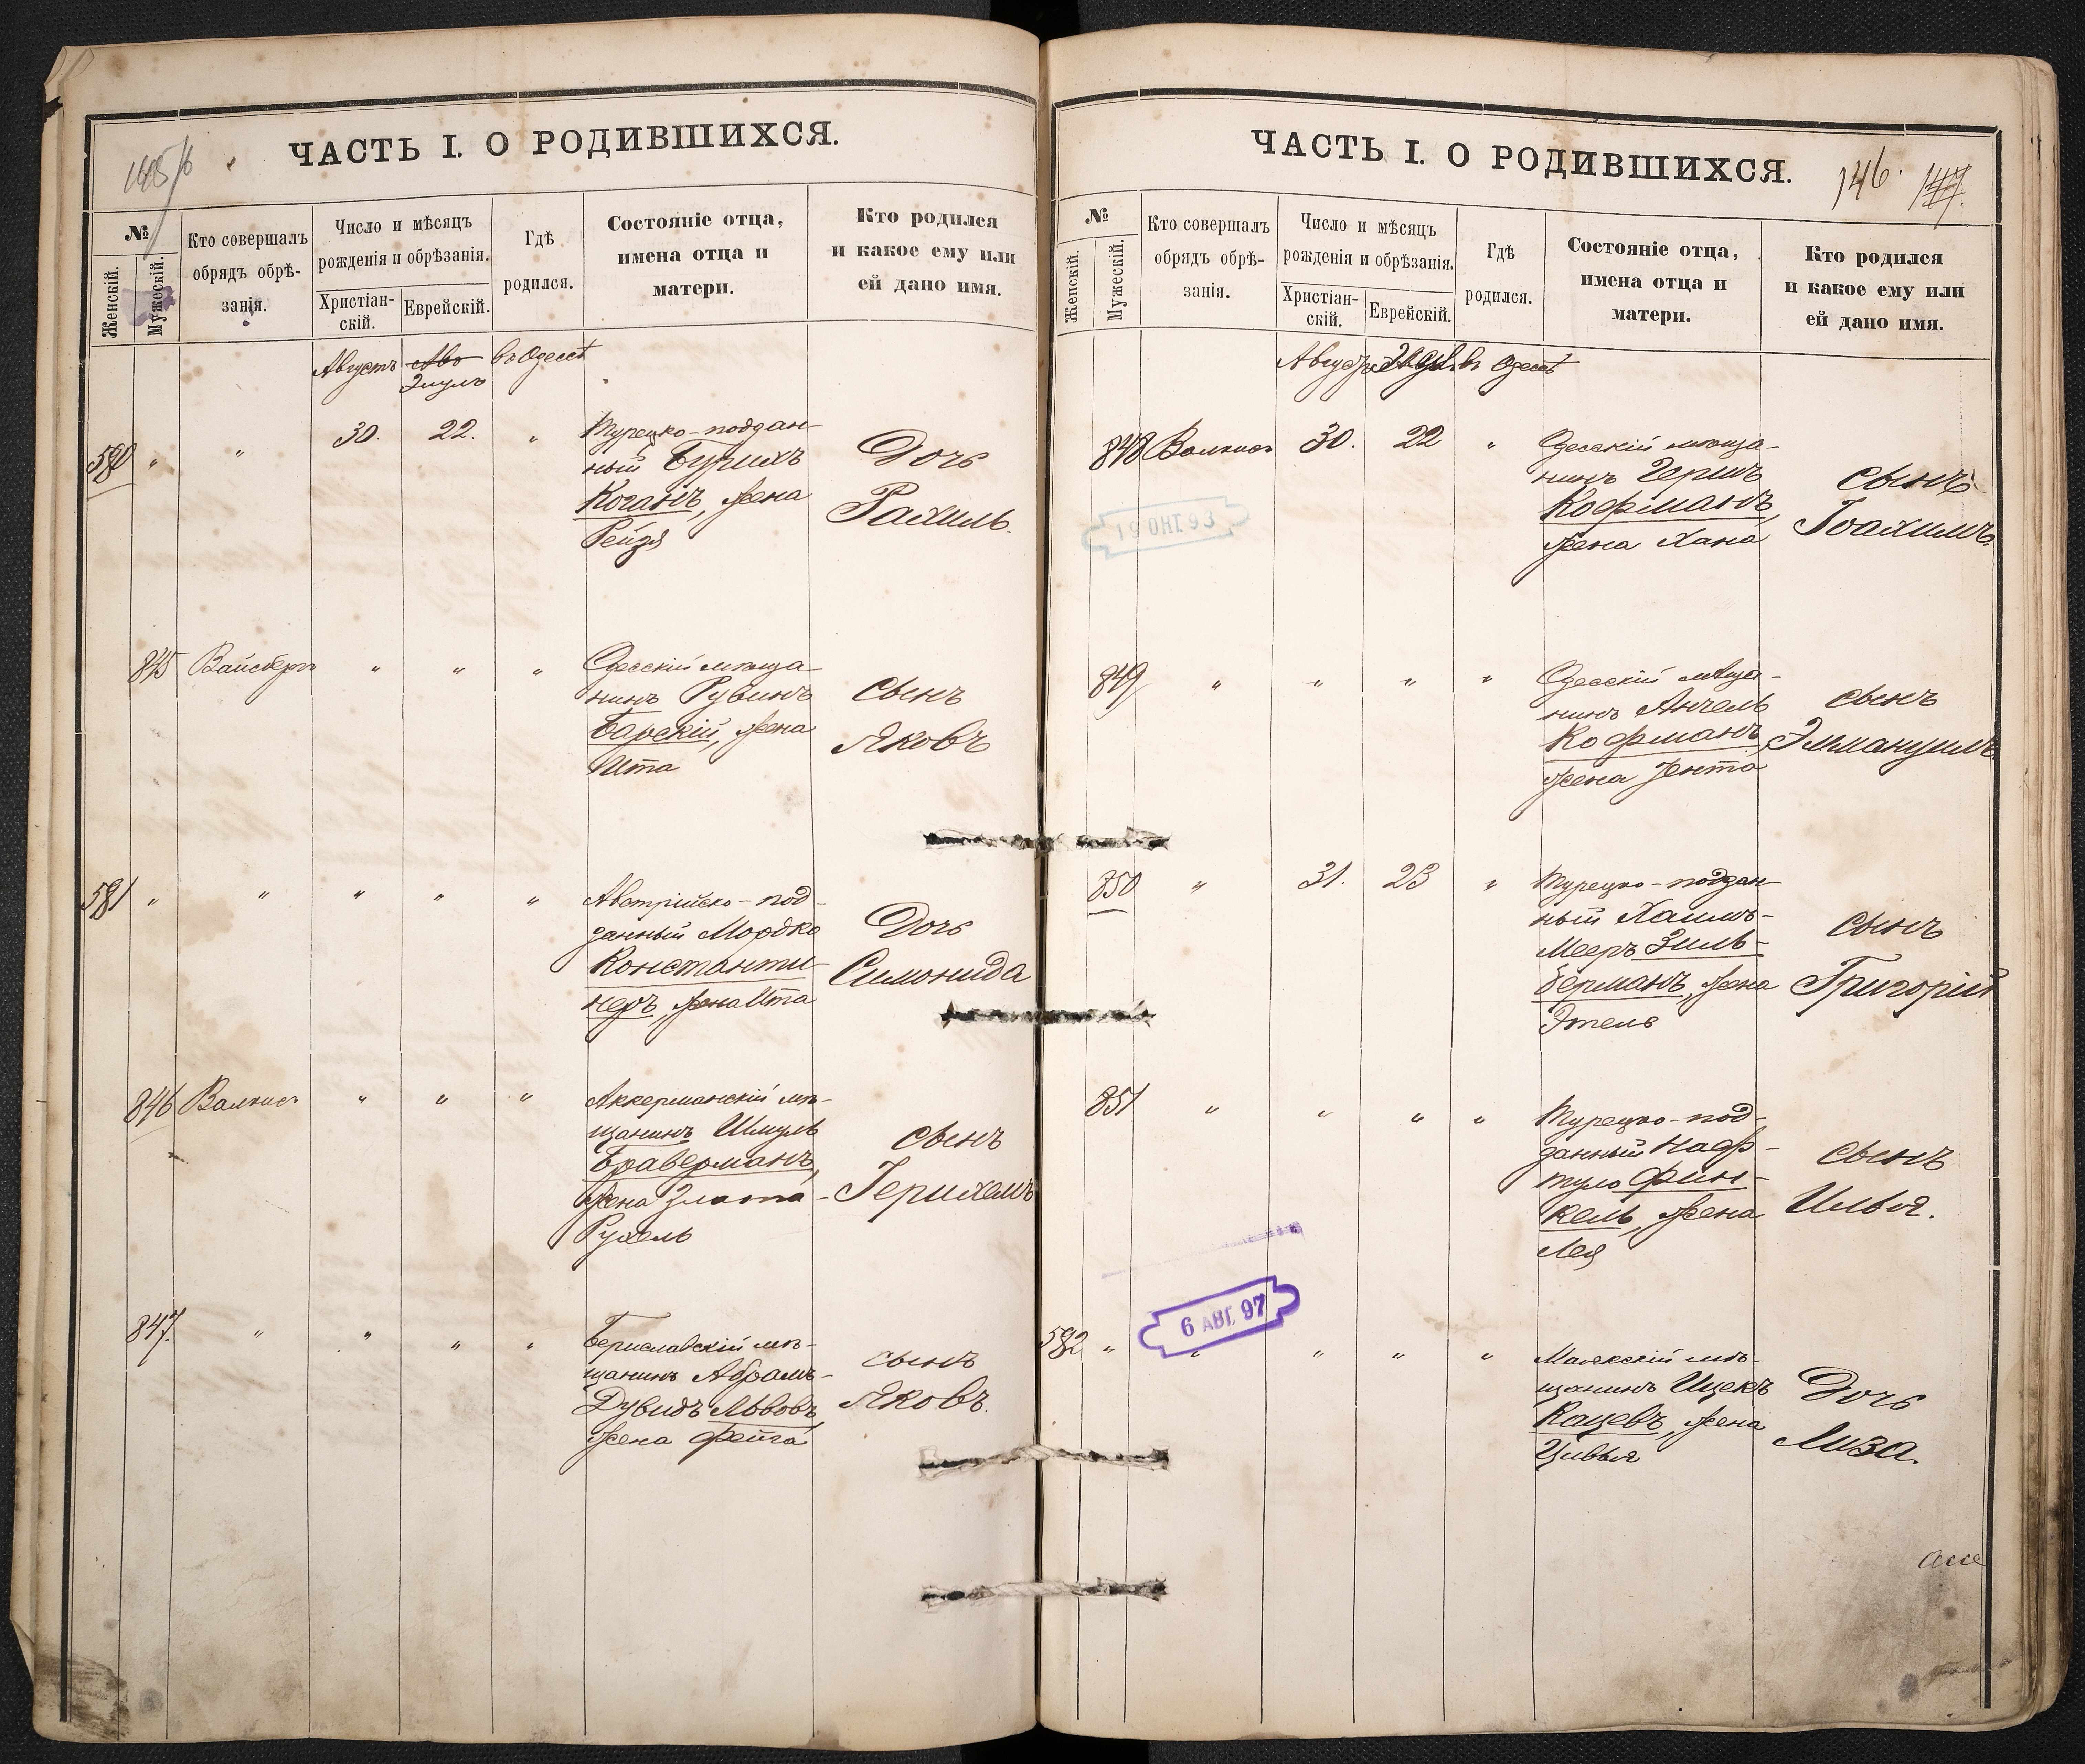 ЧАСТЬ I. О РОДИВШИХСЯ.
№
Женскій.
Мужескій.
Кто совершалъ
обрядъ обрѣ-
занія.
Число и мѣсяцъ
рожденія и обрѣзанія.
Христіан-
скій.
Еврейскій.
Гдѣ
родился.
Состояніе отца,
имена отца и
матери.
Кто родился
и какое ему или
ей дано имя.
Августъ Авъ въ Одессѣ
Элулъ
580 " " 30. 22. "
Турецко-поддан-
ный Бурихъ
Коганъ, жена
Рейзя
Дочь
Рахиль.
845 Вайсбергъ " " "
Одесскій мѣща-
нинъ Рувинъ
Барскій, жена
Ита
сынъ
Яковъ
581 " " " " "
Австрійско-под-
данный Мордко
Константи-
неръ, жена Ита
Дочь
Симонида
846 Валкисъ " " "
Аккерманскій мѣ-
щанинъ Шмуль
Браверманъ,
жена Злота-
Рухель
сынъ
Іерихемъ
847. " " " "
Бериславскій мѣ-
щанинъ Абрамъ-
Дувидъ Львовъ,
жена Фейга
сынъ
Яковъ.
ЧАСТЬ I. О РОДИВШИХСЯ.
146. 147.
№
Женскій.
Мужескій.
Кто совершалъ
обрядъ обрѣ-
занія.
Число и мѣсяцъ
рожденія и обрѣзанія.
Христіан-
скій.
Еврейскій.
Гдѣ
родился.
Состояніе отца,
имена отца и
матери.
Кто родился
и какое ему или
ей дано имя.
Августъ Элулъ въ Одессѣ
848 Валкисъ 30. 22 "
Одесскій мѣща-
нинъ Гершъ
Кофманъ,
жена Хана
сынъ
Іоахимъ.
19 ОКТ. 93
849 " " " "
Одесскій мѣща-
нинъ Анчель
Кофманъ,
жена Јента
сынъ
Эммануилъ.
850 " 31. 23 "
Турецко-поддан-
ный Хаимъ-
Мееръ Зиль-
берманъ, жена
Этель
сынъ
Григорій
851 " " " "
Турецко-под-
данный Наф-
туло Фин-
кель, жена
Лея
сынъ
Илья.
6 АВГ. 97
582 " " " " "
Маякскій мѣ-
щанинъ Ицекъ
Кацевъ, жена
Цивья
Дочь
Лиза.